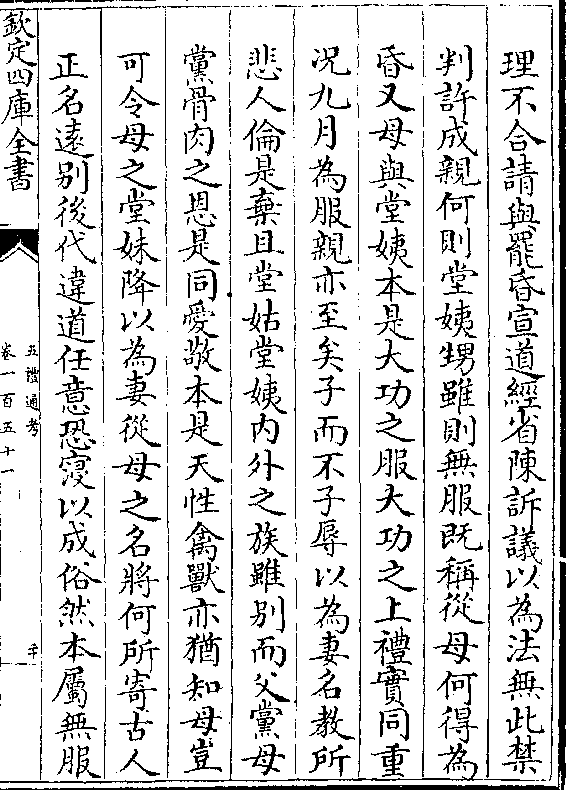 理不合請與罷昏宣道經省陳訴議以為法無此禁
判許成親何則堂姨甥雖則無服既稱從母何得為
昏又母與堂姨本是大功之服大功之上禮實同重
况九月為服親亦至矣子而不子辱以為妻名教所
悲人倫是棄且堂姑堂姨内外之族雖别而父黨母
黨骨肉之恩是同愛敬本是天性禽獸亦猶知母豈
可令母之堂妹降以為妻從母之名將何所寄古人
正名逺别後代違道任意恐寖以成俗然本屬無服
欽定四庫全書
五禮通考
卷一百五十一